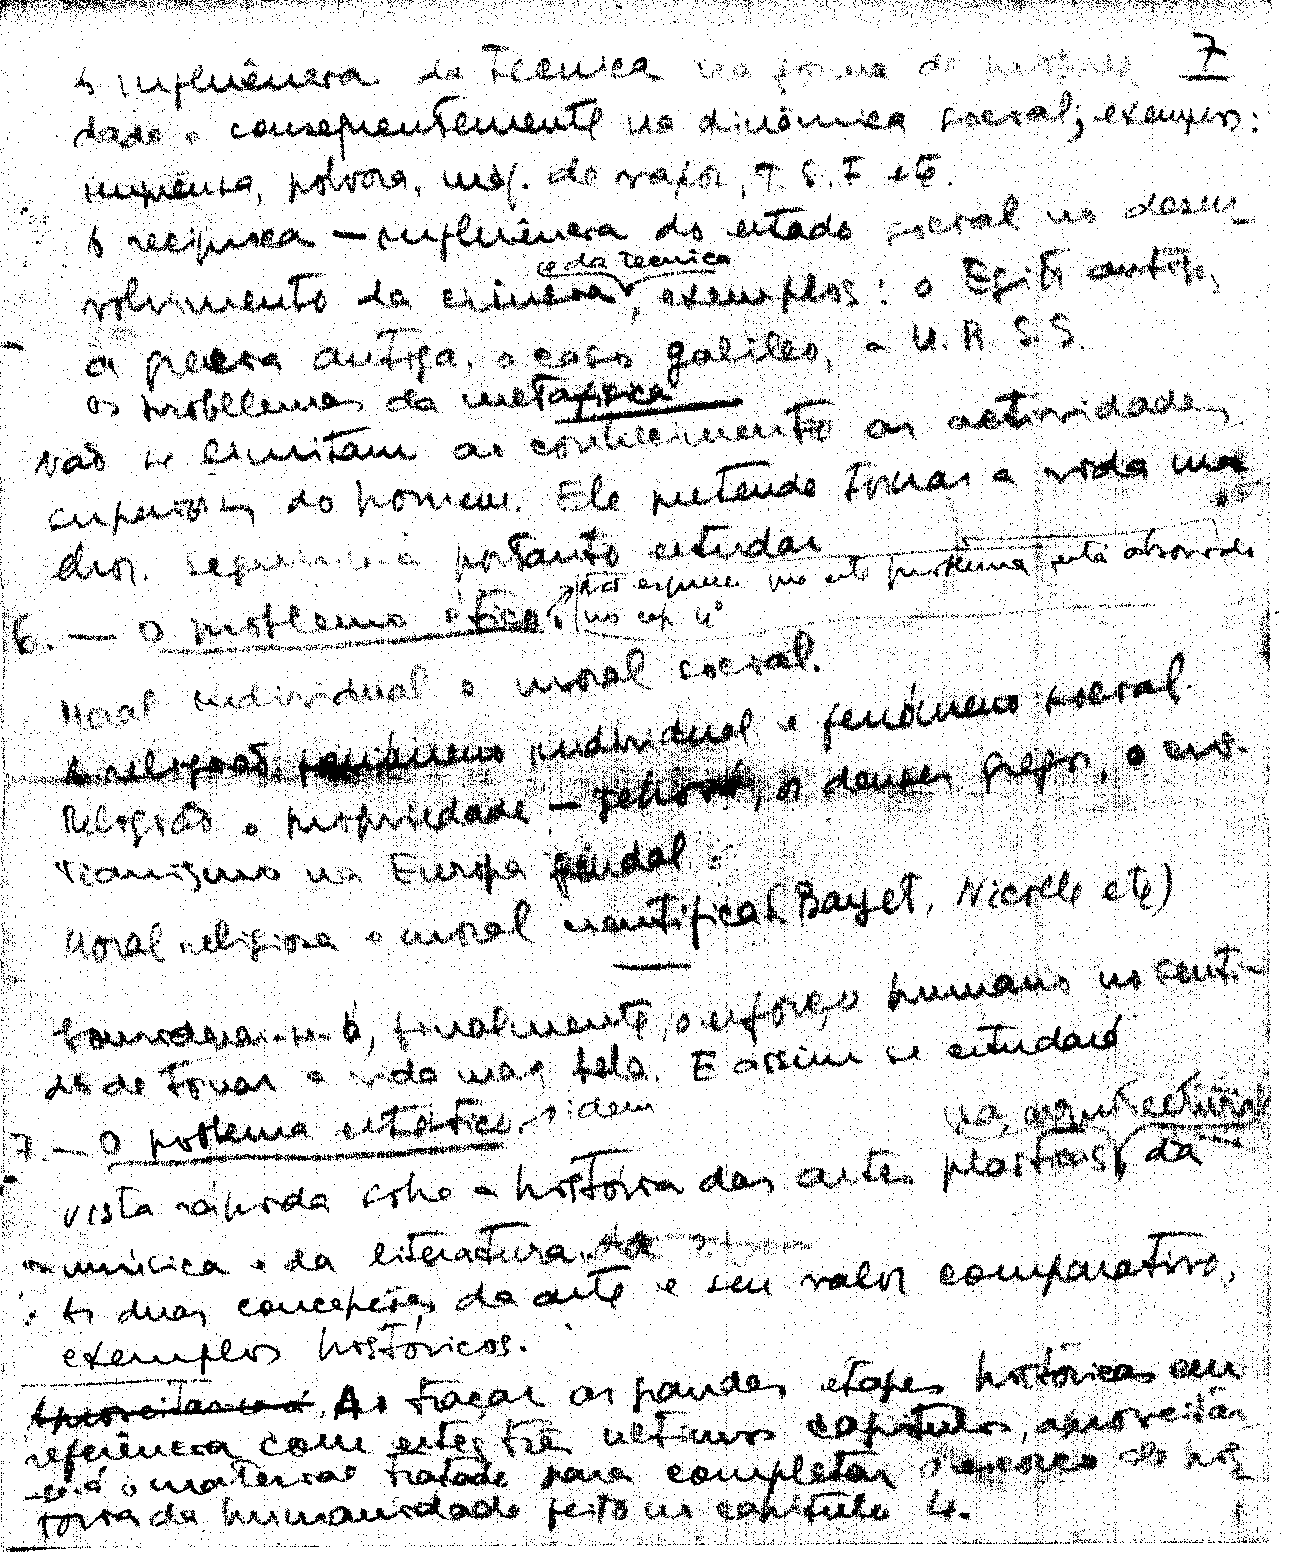 7
A influência da técnica na forma de proprie
dade e consequentemente na dinâmica social; exemplos:
imprensa, pólvora, máq. de vapor, T. S. F etc.
A recíproca — influência do estado social no desen
volvimento da ciência e da técnica, exemplos: o Egito antigo,
a grecia antiga, o caso galileo, a U. R. S. S.
os probllemas da metafisica
Não se limitam ao conhecimento as actividades
superiores do homem. Ele pretende tornar a vida me
lhor. portanto estudar
6. — O problema ético. não esquecer que este problema está abordado
no cap. 4º
Moral individual e moral social.
A religião, fenómeno individual e fenómeno social.
Religião e propriedade — Jehová, os deuses gregos, o cris
tianismo na Europa feudal.
Moral religiosa e moral cientifica (Bayet, Nicolle etc)
Considerar-se-á, finalmente, o esforço humano no senti-
do de tornar a vida mais bela. E assim se estudará
7. — O problema estético. idem
na arquitectura
vista rápida sobre a história das artes plasticas, da
musica e da literatura.
As duas concepções da arte e seu valor comparativo,
exemplos históricos.
Aproveitar-se-á Ao traçar as grandes etapes históricas em
referência com estes três ultimos capitulos, aproveitar
se-á o material tratado para completar o esboço da his
toria da humanidade feito no capitulo 4.